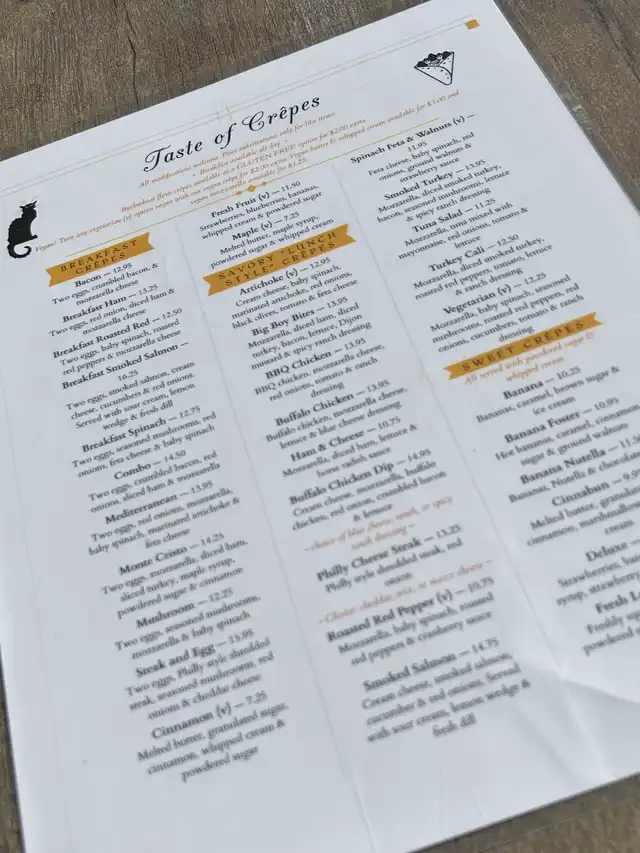 Taste of Crêpes
All modifications welcome. Price substitutions only for like items.
Breakfast available all day.
Buckwheat flour crêpes available as a GLUTEN FREE option for $2.00 extra.
Vegan? Turn any vegetarian (v) option vegan with our vegan crêpe for $2.00 extra. Vegan butter & whipped cream available for $1.00 and
vegan mozzarella available for $1.25.
BREAKFAST
CRÊPES
Bacon — 12.95
Two eggs, crumbled bacon, &
mozzarella cheese
Breakfast Ham — 13.25
Two eggs, red onion, diced ham &
mozzarella cheese
Breakfast Roasted Red — 12.50
Two eggs, baby spinach, roasted
red peppers & mozzarella cheese
Breakfast Smoked Salmon —
16.25
Two eggs, smoked salmon, cream
cheese, cucumbers & red onions.
Served with sour cream, lemon
wedge & fresh dill
Breakfast Spinach — 12.75
Two eggs, seasoned mushrooms, red
onions, feta cheese & baby spinach
Combo — 14.50
Two eggs, crumbled bacon, red
onions, sliced ham & mozzarella
Mediterranean — 13.95
Two eggs, red onions, mozzarella,
baby spinach, marinated artichoke &
feta cheese
Monte Cristo — 14.25
Two eggs, mozzarella, diced ham,
sliced turkey, maple syrup,
powdered sugar & cinnamon
Mushroom — 12.25
Two eggs, seasoned mushrooms,
mozzarella & baby spinach
Steak and Egg — 15.95
Two eggs, Philly style shredded
steak, seasoned mushrooms, red
onions & cheddar cheese
Cinnamon (v) — 7.25
Melted butter, granulated sugar,
cinnamon, whipped cream &
powdered sugar
Fresh Fruit (v) — 11.50
Strawberries, blueberries, bananas,
whipped cream & powdered sugar
Maple (v) — 7.25
Melted butter, maple syrup,
powdered sugar & whipped cream
SAVORY "LUNCH
STYLE" CRÊPES
Artichoke (v) — 12.95
Cream cheese, baby spinach,
marinated artichoke, red onions,
black olives, tomato & feta cheese
Big Boy Bites — 13.95
Mozzarella, diced ham, sliced
turkey, bacon, lettuce, Dijon
mustard & spicy ranch dressing
BBQ Chicken — 13.95
BBQ chicken, mozzarella cheese,
red onions, tomato & ranch
dressing
Buffalo Chicken — 13.95
Buffalo chicken, mozzarella cheese,
lettuce & blue cheese dressing
Ham & Cheese — 10.75
Mozzarella, diced ham, lettuce &
horse radish sauce
Buffalo Chicken Dip — 14.95
Cream cheese, mozzarella, buffalo
chicken, red onion, crumbled bacon
& lettuce
~choice of blue cheese, ranch, or spicy
ranch dressing~
Philly Cheese Steak — 13.25
Philly style shredded steak, red
onion
~Choice: cheddar, mix, or mozz cheese~
Roasted Red Pepper (v) — 10.75
Mozzarella, baby spinach, roasted
red peppers & cranberry sauce
Smoked Salmon — 14.75
Cream cheese, smoked salmon,
cucumber & red onions. Served
with sour cream, lemon wedge &
fresh dill
Spinach Feta & Walnuts (v) —
11.95
Feta cheese, baby spinach, red
onions, ground walnuts &
strawberry sauce
Smoked Turkey — 13.95
Mozzarella, diced smoked turkey,
bacon, seasoned mushrooms, lettuce
& spicy ranch dressing
Tuna Salad — 11.25
Mozzarella, tuna mixed with
mayonnaise, red onions, tomato &
lettuce
Turkey Cali — 12.50
Mozzarella, diced smoked turkey,
roasted red peppers, tomato, lettuce
& ranch dressing
Vegetarian (v) — 12.25
Mozzarella, baby spinach, seasoned
mushrooms, roasted red peppers, red
onions, cucumbers, tomato & ranch
dressing
SWEET CRÊPES
All served with powdered sugar &
whipped cream
Banana — 10.25
Bananas, caramel, brown sugar &
ice cream
Banana Foster — 10.95
Hot bananas, caramel, cinnamon
sugar & ground walnuts
Banana Nutella — 11.
Bananas, Nutella & chocolate
Cinnabun — 9.9
Melted butter, granulated
cinnamon, marshmallow
cream
Deluxe —
Strawberries, ba
syrup, strawberry
Fresh L
Freshly sq
powdered